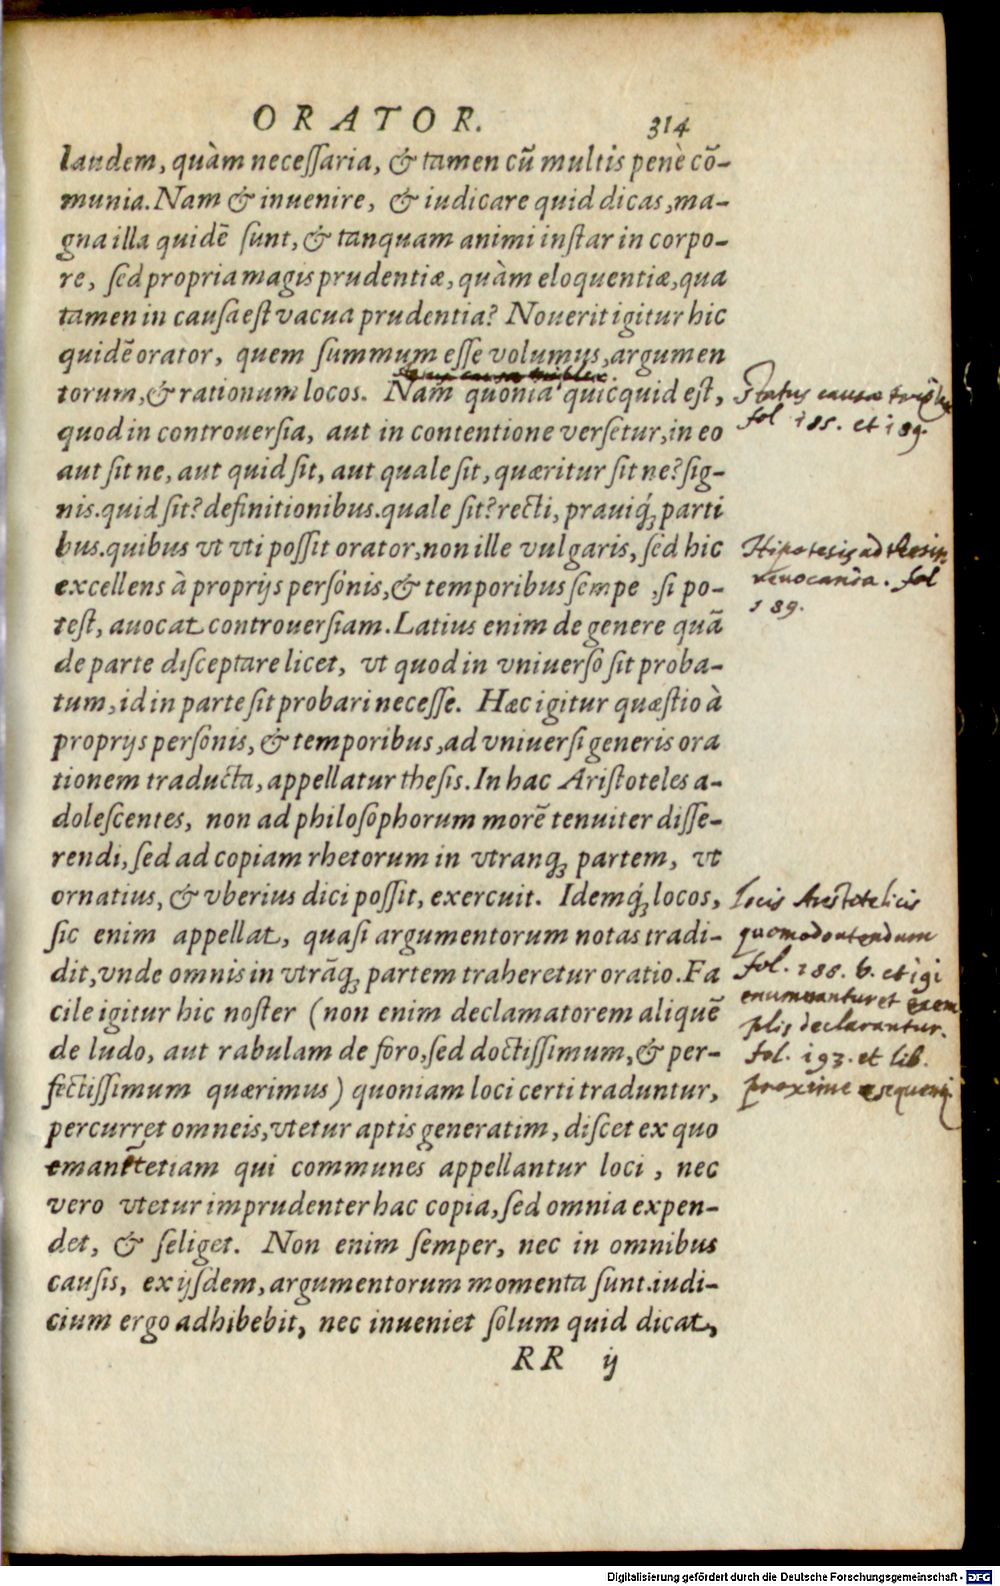 ORATOR. 314
laudem, quàm necessaria, & tamen cū multis penè cō-
munia. Nam & inuenire, & iudicare quid dicas, ma-
gna illa quidē sunt, & tanquam animi instar in corpo-
re, sed propria magis prudentiæ, quàm eloquentiæ, qua
tamen in causa est vacua prudentia? Nouerit igitur hic
quidē orator, quem summum esse volumus, argumen
torum, & rationum locos. Nam quonia quicquid est,
quod in controuersia, aut in contentione versetur, in eo
aut sit ne, aut quid sit, aut quale sit, quæritur sit ne? sig-
nis. quid sit? definitionibus. quale sit? recti, prauiq́; parti
bus. quibus vt vti possit orator, non ille vulgaris, sed hic
excellens à proprijs personis, & temporibus sempe , si po-
test, auocat controuersiam. Latius enim de genere quā
de parte disceptare licet, vt quod in vniuerso sit proba-
tum, id in parte sit probari necesse. Hæc igitur quæstio à
proprijs personis, & temporibus, ad vniuersi generis ora
tionem traducta, appellatur thesis. In hac Aristoteles a-
dolescentes, non ad philosophorum morē tenuiter disse-
rendi, sed ad copiam rhetorum in vtranq; partem, vt
ornatius, & vberius dici possit, exercuit. Idemq́; locos,
sic enim appellat, quasi argumentorum notas tradi-
dit, vnde omnis in vtrāq; partem traheretur oratio. Fa
cile igitur hic noster (non enim declamatorem aliquē
de ludo, aut rabulam de foro, sed doctissimum, & per-
fectissimum quærimus) quoniam loci certi traduntur,
percurret omneis, vtetur aptis generatim, discet ex quo
emanēt etiam qui communes appellantur loci, nec
vero vtetur imprudenter hac copia, sed omnia expen-
det, & seliget. Non enim semper, nec in omnibus
causis, ex ijsdem, argumentorum momenta sunt. iudi-
cium ergo adhibebit, nec inueniet solum quid dicat,
RR ij
Status causæ triplex
fol 185. et 189.
Hipotesis ad thesin
reuocanda. fol
189.
Locis Aristotelicis
quomodo utendum
fol. 188. b. et 191
enumerantur et exem
plis declarantur.
fol. 193. et lib.
proxime sequenti
Digitalisierung gefördert durch die Deutsche Forschungsgemeinschaft - DFG